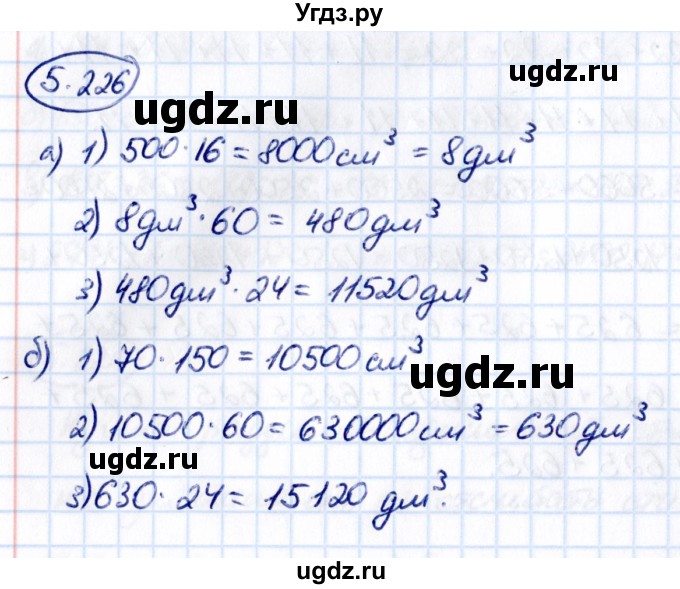 Угдз.ру
5.226
ugdz.ru
ugdz.ru
а) 1) 500·16 = 8000 см³ = 8 дм³
2) 8 дм³·60 = 480 дм³
3) 480 дм³·24 = 11520 дм³
б) 1) 70·150 = 10500 см³
ugdz.ru
2) 10500·60 = 630000 см³ = 630 дм³
ugdz.ru
3) 630·24 = 15120 дм³.
ugdz.ru
ugdz.ru